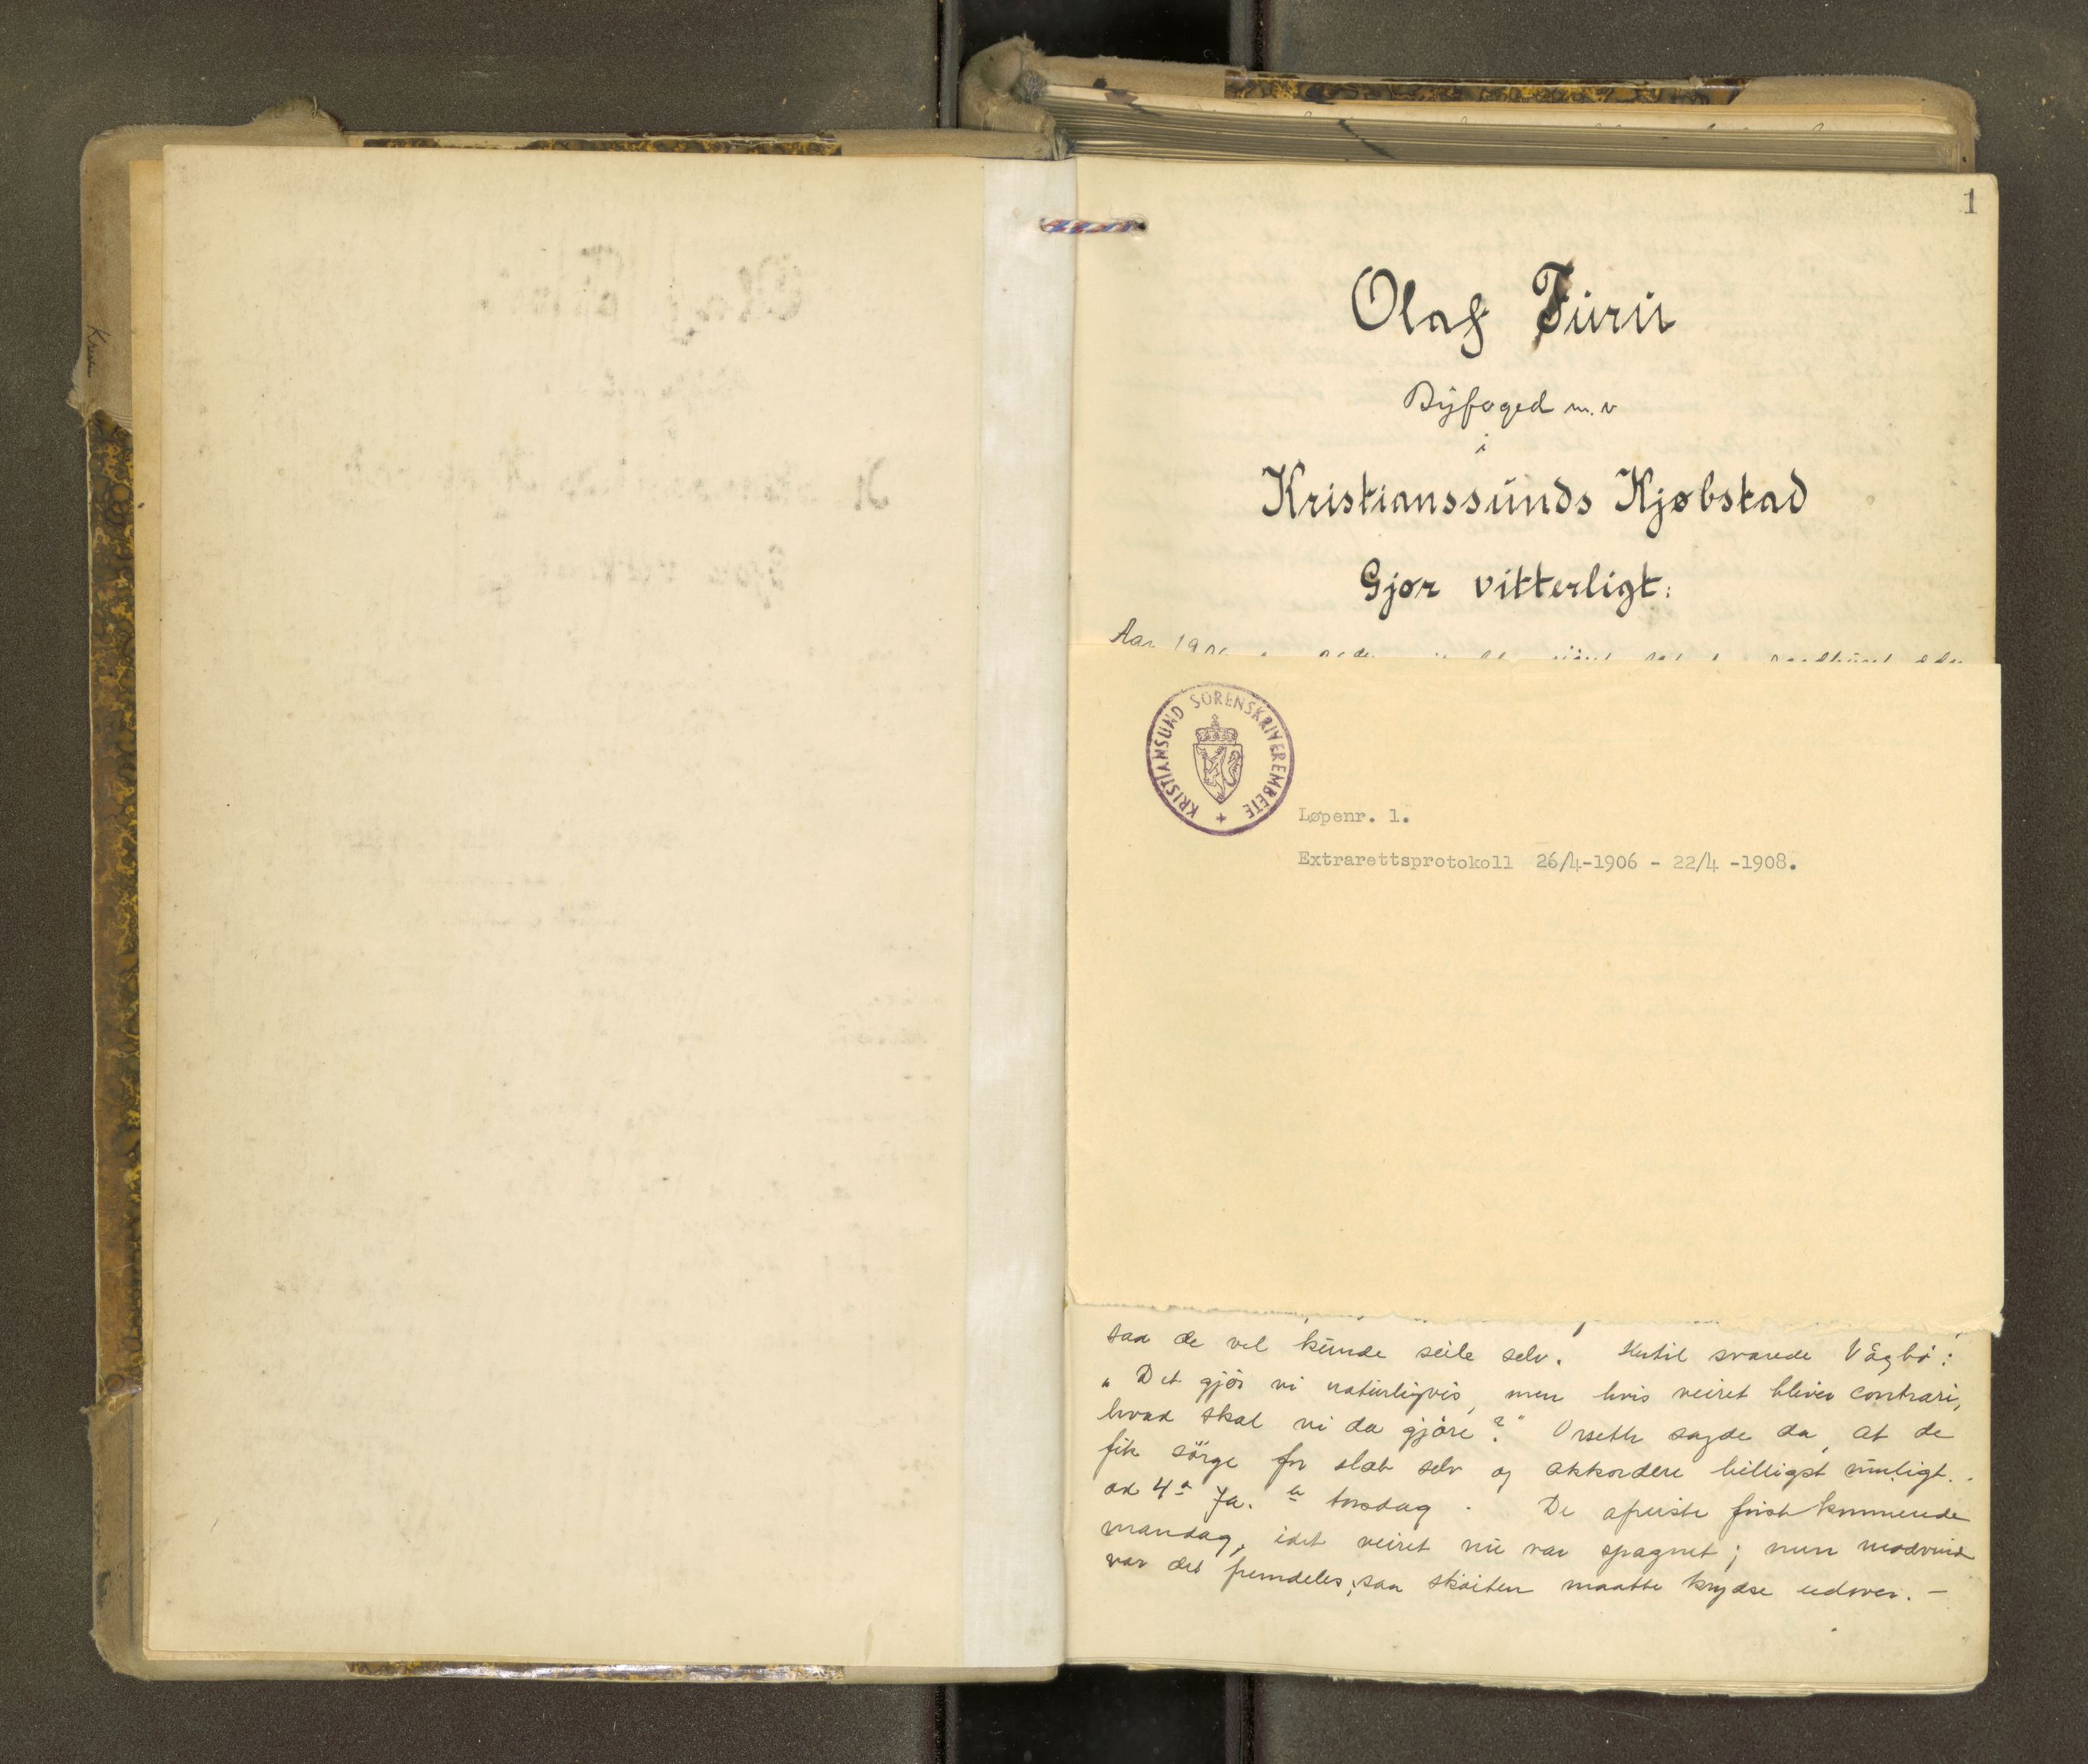 1
Olaf Furu
Byfoged m.v
i
Kristianssunds Kjøbstad
Gjør vitterligt:
Aar 1906
KRISTIANSUND SORENSKRIVEREMBETE
Løpenr. 1.
Extrarettsprotokoll 26/4-1906 - 22/4 -1908.
saa de vel kunde seile selv. Hertil svarede Vågbø:
"Det gjør vi naturligvis, men hvis veiret bliver contrari,
hvad skal vi da gjøre?" Orseth sagde da, at de
fik sørge for slæb selv og akkordere billigst muligt.
ad 4de Ja. torsdag. De afreiste først kommende
mandag, idet veiret nu var spagnet; men modvind
var det fremdeles, saa skøiten maatte krydse udover. -
Kris